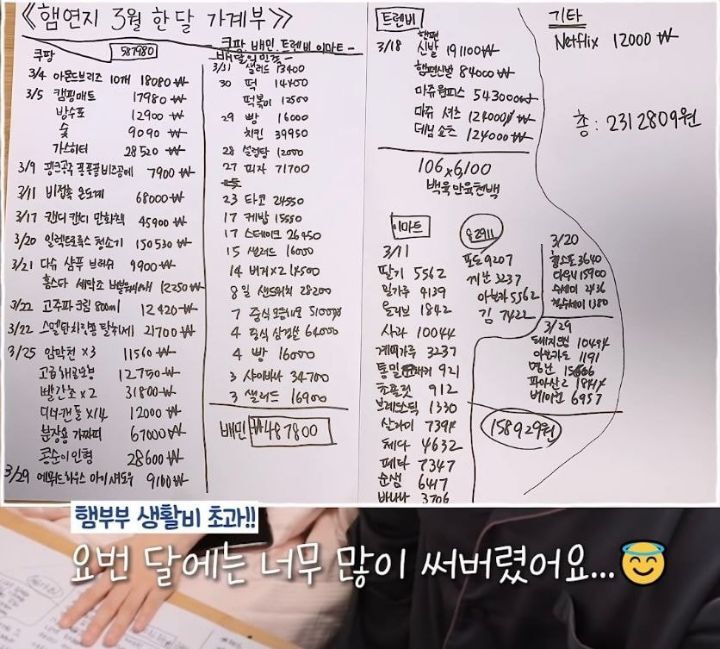 《햄연지 3월 한달 가계부》
쿠팡 587980
- 쿠팡, 배민, 트렌비 이마트 -
3/4 아몬드브리즈 10개 18080₩
3/5 캠핑매트 17980₩
방수포 12900₩
숯 9090₩
가스히터 28520₩
3/9 핑크공주 비즈공예 7900₩
3/11 비접촉 온도계 68000₩
3/17 캔디캔디 만화책 45900₩
3/20 일렉트로룩스 청소기 150530₩
3/21 다슈 샴푸 브러쉬 9900₩
홈스타 세탁조 12250₩
3/22 고주파크림 800ml 12420₩
3/22 21700₩
3/25 암막천 x3 11560₩
12750₩
빨간초 x2 31800₩
티캔들 x14 12000₩
분장용 가짜피 67000₩
콩순이인형 28600₩
3/29 에뛰드하우스 아이섀도우 9100₩
3/31 샐러드 13400
30 떡 14400
떡볶이 12500
29 빵 16000
치킨 39950
28 설렁탕 12000
27 피자 21700
23 타코 24550
17 케밥 15550
17 스테이크 26450
15 샐러드 16000
14 버거x2
8일 샌드위치 28200
7 중식 51000
4 중식 64000
4 빵 16000
3 샤이바나 34700
3 샐러드 16900
배민 ₩487800
트렌비
3/18 햄편 신발 191100₩
햄편신발 84000₩
마쥬원피스 543000₩
마쥬 셔츠 124000₩
데님쇼츠 124000₩
106x6,100
백육만육천백
이마트
3/11
딸기 5562
밀가루 4139
올리브 1842
사과 10044
계피가루 3237
통밀 921
초콜렛 912
브레드스틱 1330
산과이 7394
체다 4632
페타 7347
순샘 6417
바나나 3706
포도 9207
3237
아보카도 5562
김 7422
3/20
3640
다우니 15900
수세미 2436
1380
3/29
10494
아보카도 1191
명란
베이컨 6957
158929원
기타
Netflix 12000₩
총 : 2312809원
햄부부 생활비 초과!!
요번 달에는 너무 많이 써버렸어요...